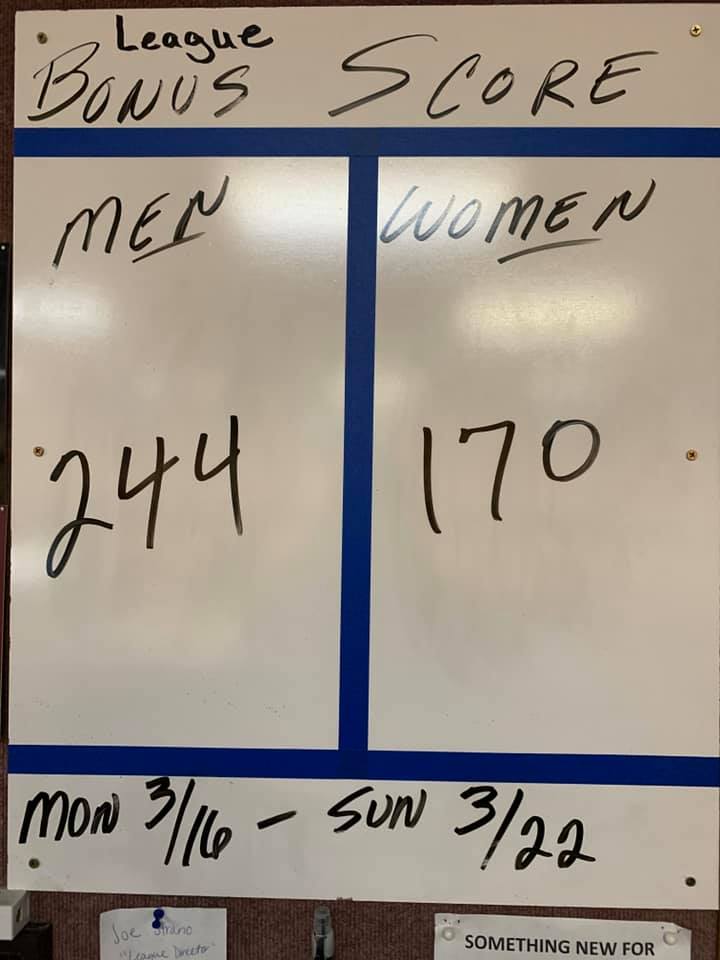 League
BONUS SCORE
MEN
WOMEN
244
170
MON 3/16 - SUN 3/22
Joe Strano
"League Director"
SOMETHING NEW FOR